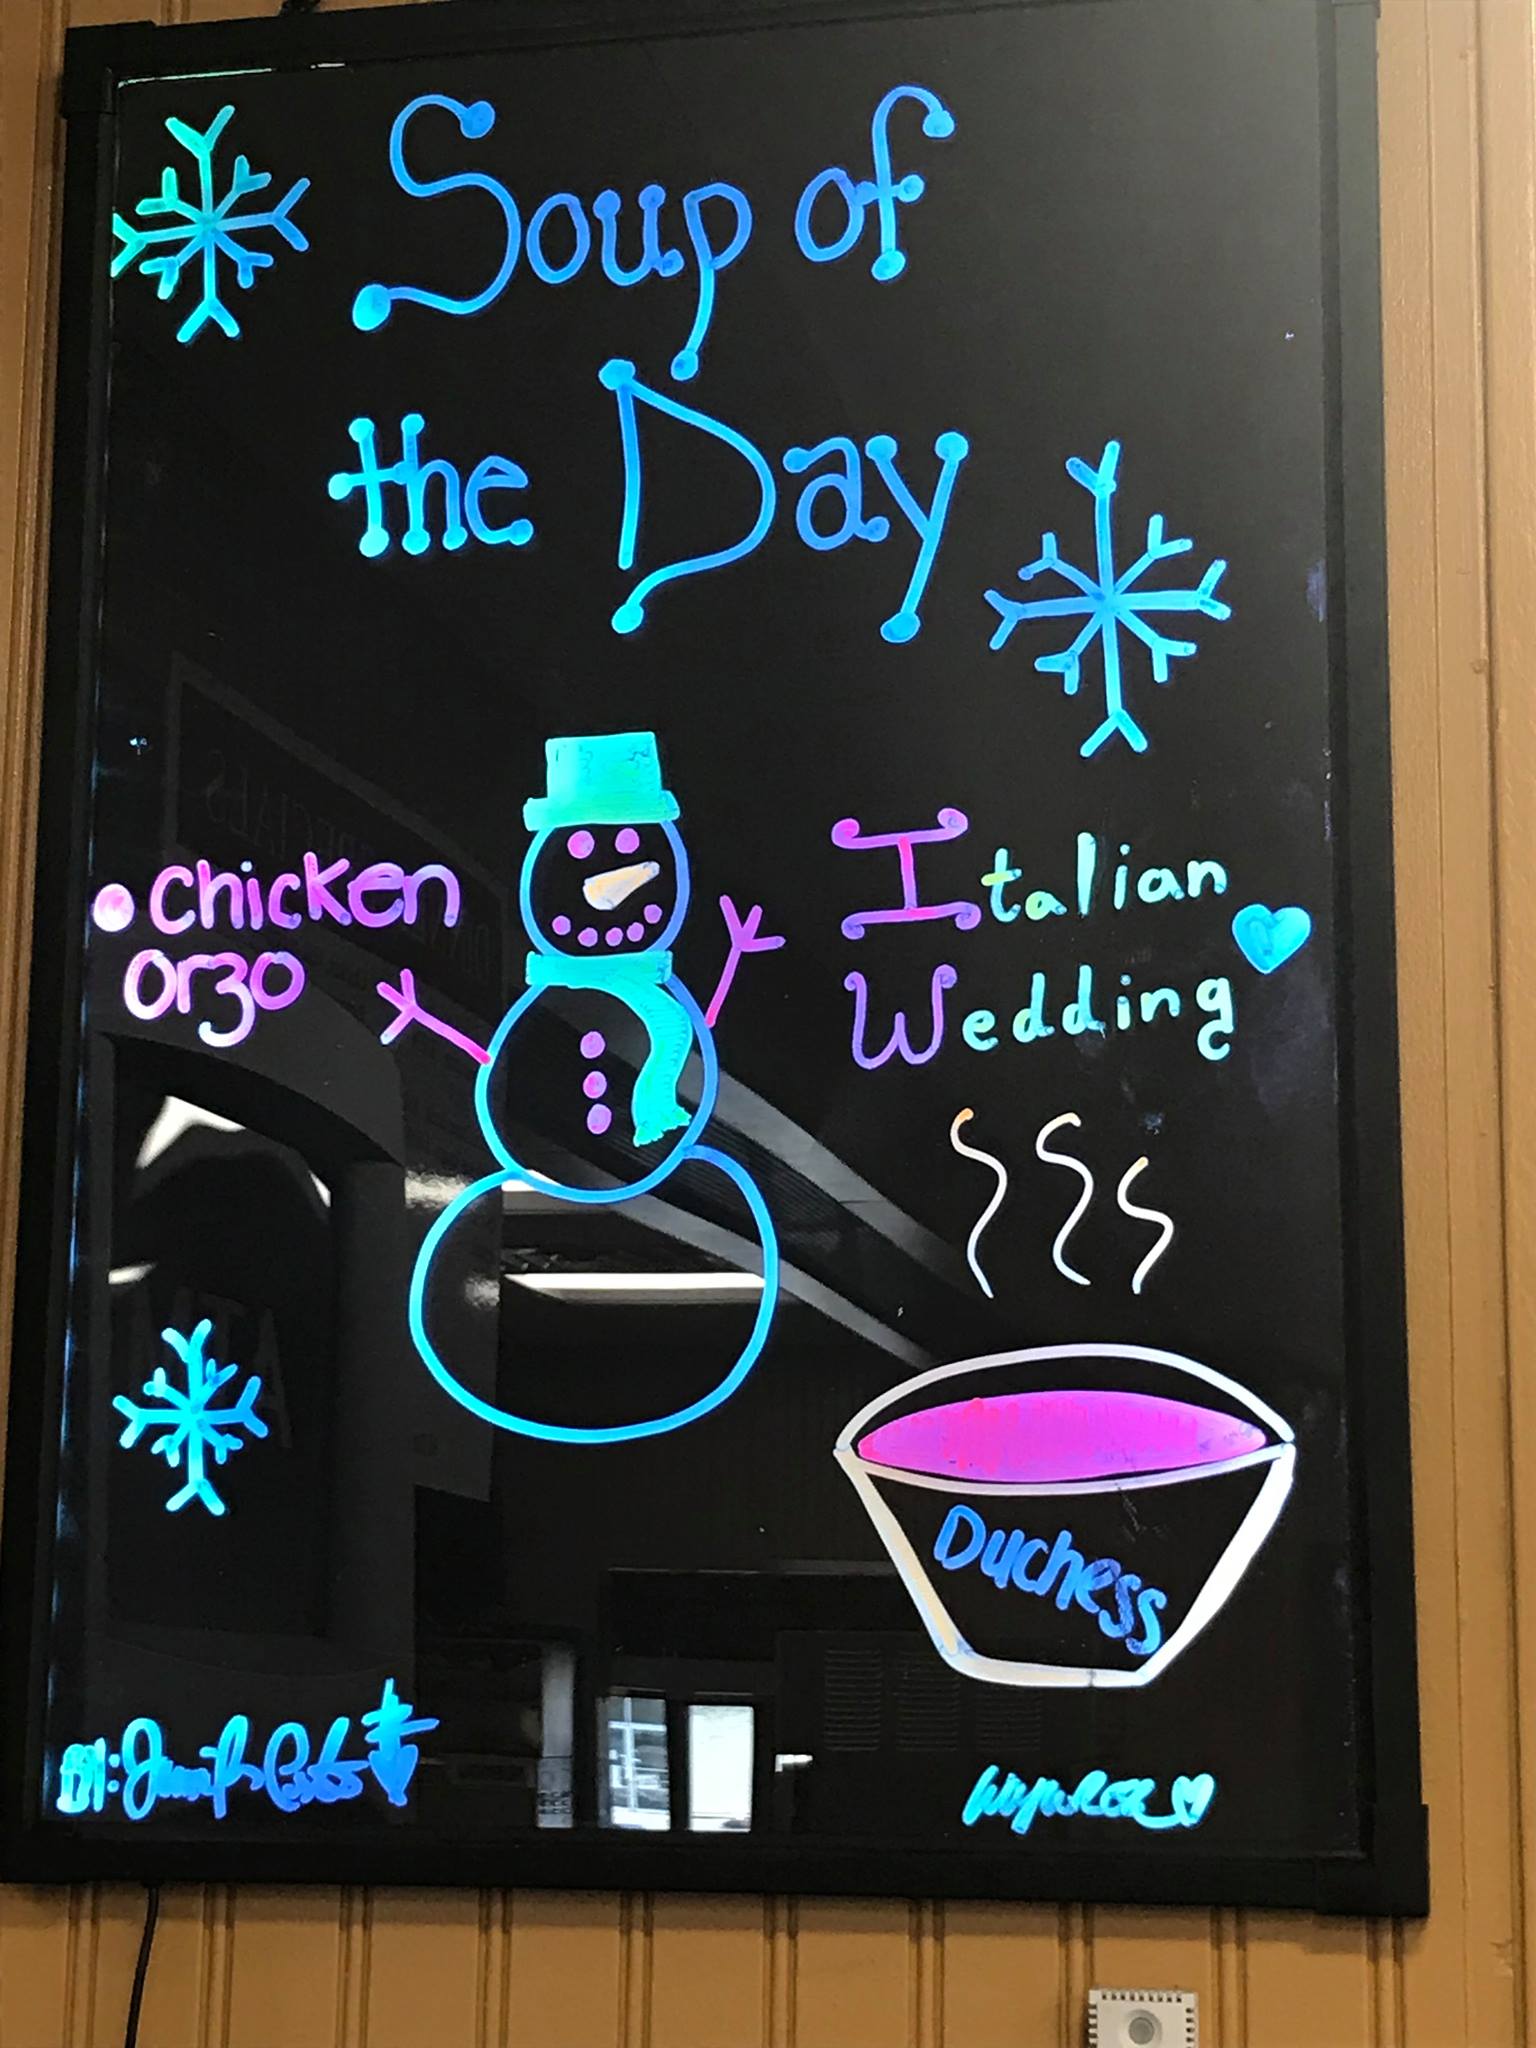 Soup of
the Day
Chicken
Orzo
Italian
Wedding
Duchess
BY: Jennifer